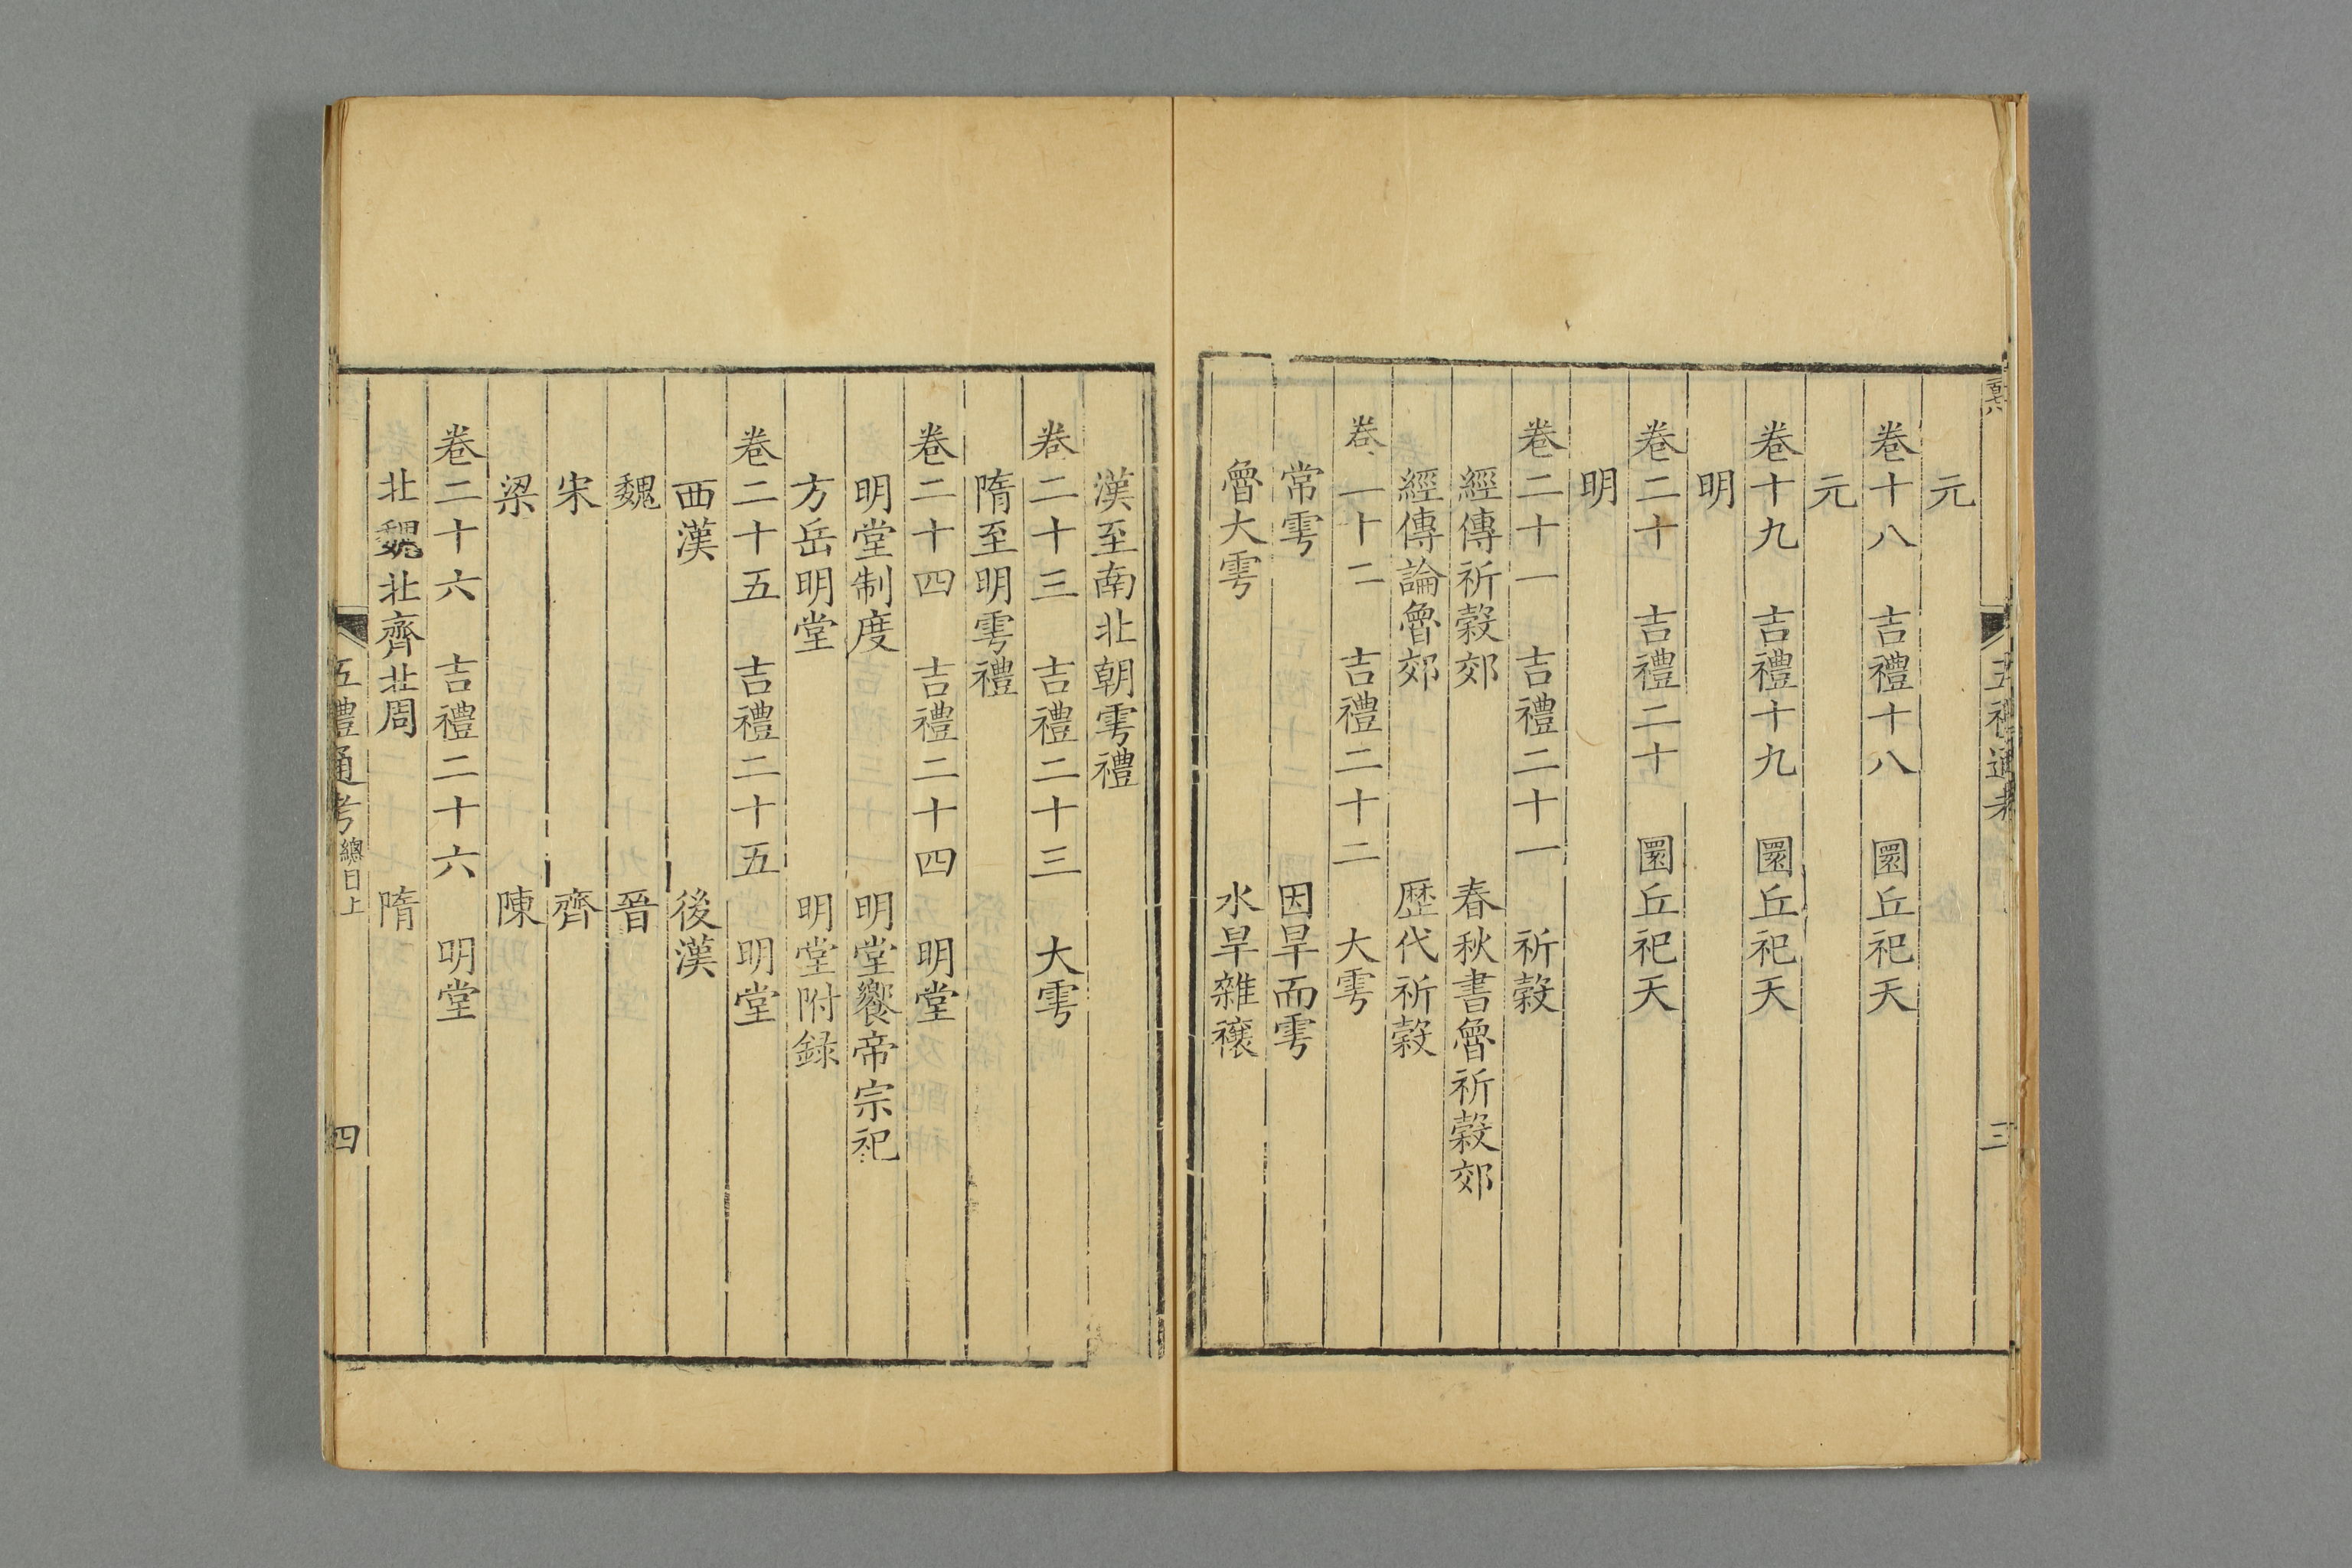 元
卷十八 吉禮十八 圜丘祀天
元
卷十九 吉禮十九 圜丘祀天
明
卷二十 吉禮二十 圜丘祀天
明
卷二十一 吉禮二十一 祈穀
經傳祈穀郊 春秋書魯祈穀郊
經傳論魯郊 歷代祈穀
卷二十二 吉禮二十二 大雩
常雩 因旱而雩
魯大雩 水旱雜禳
五禮通考 三
漢至南北朝雩禮
卷二十三 吉禮二十三 大雩
隋至明雩禮
卷二十四 吉禮二十四 明堂
明堂制度 明堂饗帝宗祀
方岳明堂 明堂附録
卷二十五 吉禮二十五 明堂
西漢 後漢
魏 晉
宋 齊
梁 陳
卷二十六 吉禮二十六 明堂
北魏北齊北周 隋
五禮通考 總目上 四